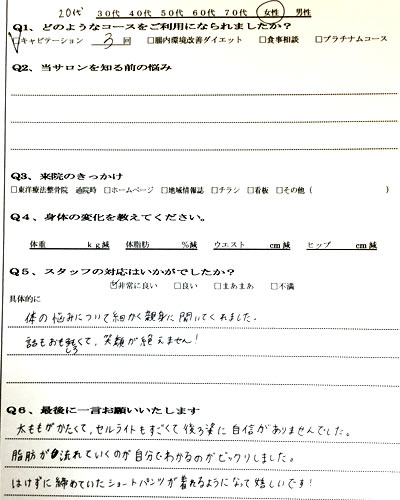 20代 30代 40代 50代 60代 70代 女性 男性
Q1、どのようなコースをご利用になられましたか?
☑キャビテーション 3 回 □腸内環境改善ダイエット □食事相談 □プラチナムコース
Q2、当サロンを知る前の悩み
Q3、来院のきっかけ
□東洋療法整骨院 通院時 □ホームページ □地域情報誌 □チラシ □看板 □その他(            )
Q4、身体の変化を教えてください。
体重      kg減 体脂肪      %減 ウエスト      cm減 ヒップ      cm減
Q5、スタッフの対応はいかがでしたか?
☑非常に良い □良い □まあまあ □不満
具体的に
体の悩みについて細かく親身に聞いてくれました。
話もおもしろくて、笑顔が絶えません!
Q6、最後に一言お願いいたします
太ももがかたくて、セルライトもすごくて後ろ姿に自信がありませんでした。
脂肪が流れていくのが自分でわかるのがビックリしました。
はけずに締めていたショートパンツが着れるようになって嬉しいです!